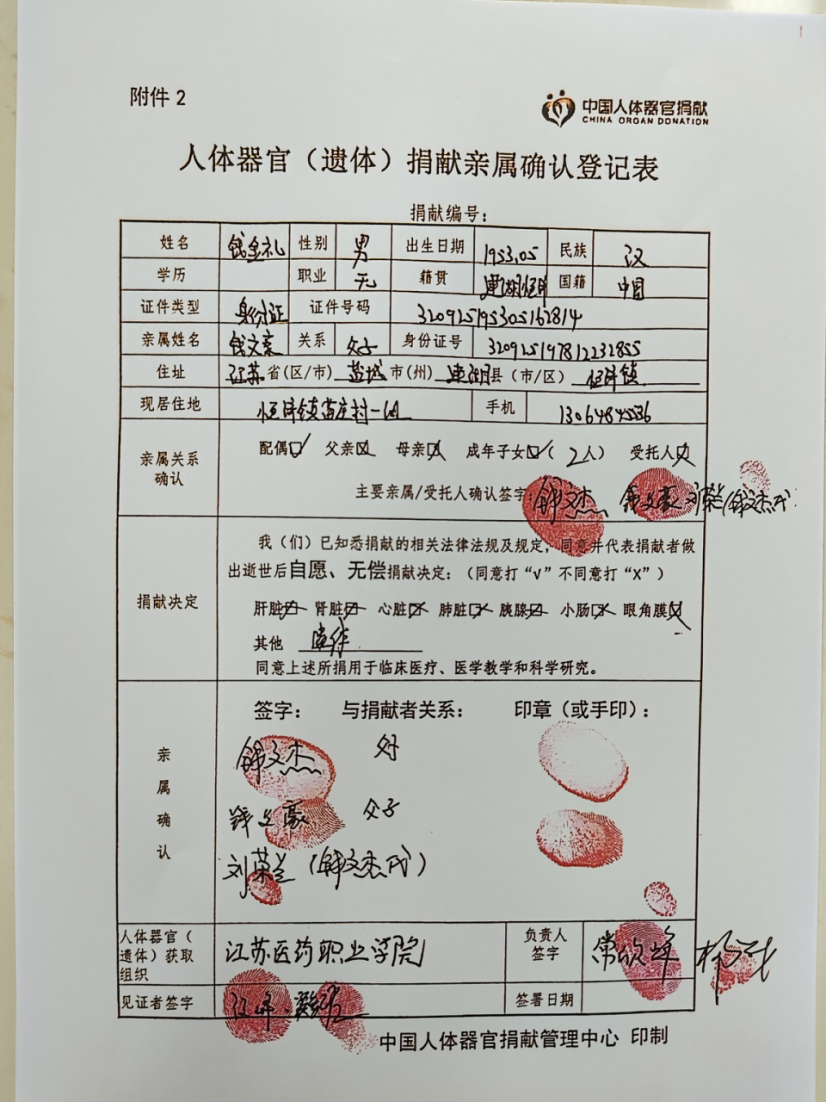 附件 2
中国人体器官捐献
CHINA ORGAN DONATION
人体器官（遗体）捐献亲属确认登记表
捐献编号：
姓名 钱金礼 性别 男 出生日期 1953.05 民族 汉
学历 职业 无 籍贯 建湖恒济 国籍 中国
证件类型 身份证 证件号码 320925195305162814
亲属姓名 钱文豪 关系 父子 身份证号 320925197812232855
住址 江苏省(区/市) 盐城市(州) 建湖县（市/区） 恒济镇
现居住地 恒济镇苗庄村一组 手机 13064845536
亲属关系确认 配偶☑ 父亲☒ 母亲☒ 成年子女☑（2人） 受托人☒
主要亲属/受托人确认签字：钱文杰 钱文豪 刘荣兰(钱文杰代)
我（们）已知悉捐献的相关法律法规及规定，同意并代表捐献者做
出逝世后自愿、无偿捐献决定：（同意打“√”不同意打“X”）
捐献决定 肝脏 肾脏 心脏 肺脏 胰腺 小肠 眼角膜
其他 遗体
同意上述所捐用于临床医疗、医学教学和科学研究。
签字： 与捐献者关系： 印章（或手印）：
亲属确认
钱文杰 父子
钱文豪 父子
刘荣兰（钱文杰代）
人体器官（遗体）获取组织 江苏医药职业学院 负责人签字 常欣峰
见证者签字 签署日期
中国人体器官捐献管理中心 印制